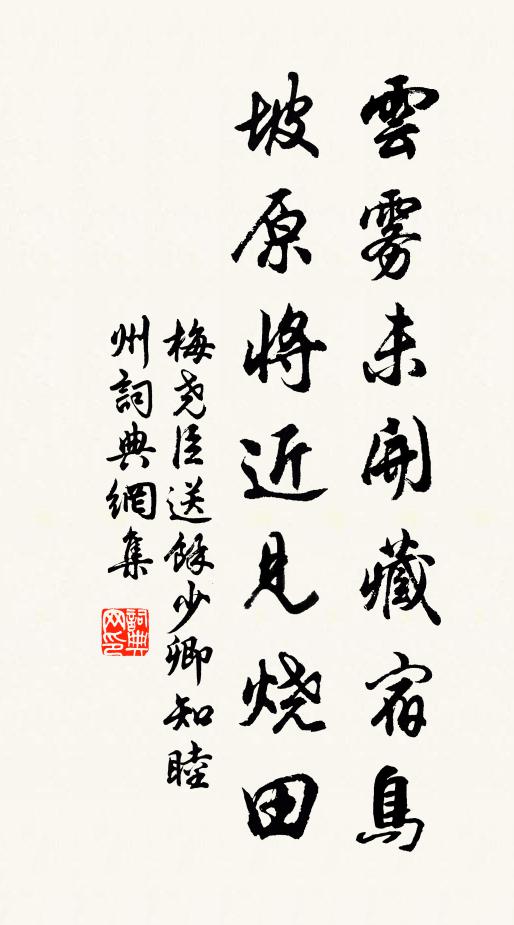 雲霧未開藏宿鳥
坡原將近見烧田
梅尧臣送餘少卿知睦
州詞典網集
詞典网印